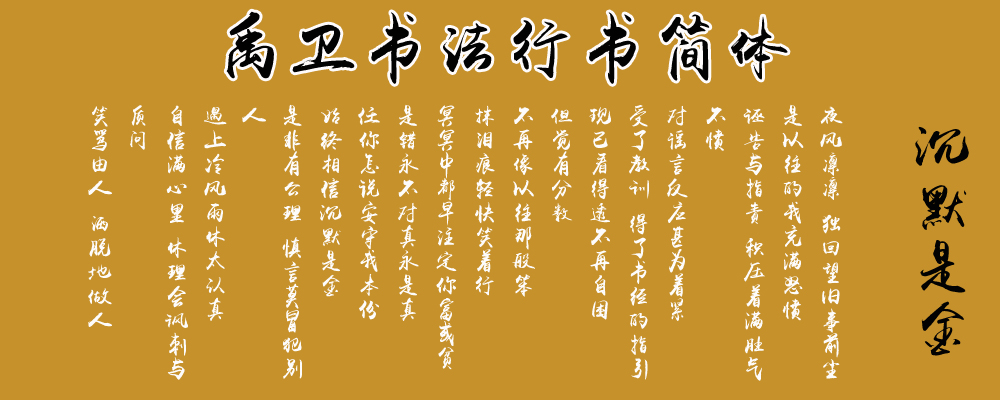 禹卫书法行书简体
沉默是金
夜风凛凛 独回望旧事前尘
是以往的我充满怒愤
诬告与指责 积压着满肚气
不愤
对谣言反应甚为着紧
受了教训 得了书经的指引
现已看得透不再自困
但觉有分数
不再像以往那般笨
抹泪痕轻快笑着行
冥冥中都早注定你富或贫
是错永不对真永是真
任你怎说安守我本份
始终相信沉默是金
是非有公理 慎言莫冒犯别
人
遇上冷风雨休太认真
自信满心里 休理会讽刺与
质问
笑骂由人 洒脱地做人